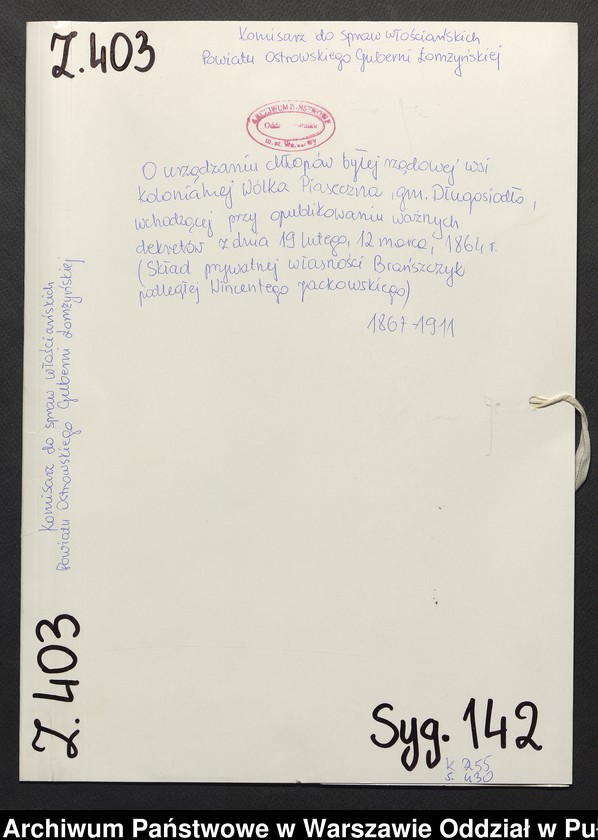 Z. 403
Komisarz do spraw włościańskich
Powiatu Ostrowskiego Guberni Łomżyńskiej
O urządzaniu chłopów byłej rządowej wsi
kolonialnej Wólka Piaseczna, gm. Długosiodło,
wchodzącej przy opublikowaniu ważnych
dekretów z dnia 19 lutego, 12 marca, 1864 r.
(Skład prywatnej własności Brańszczyk
podległej Wincentego Jackowskiego)
1867-1911
Komisarz do spraw włościańskich
Powiatu Ostrowskiego Guberni Łomżyńskiej
Z. 403
Syg. 142
k 255
s. 430
Archiwum Państwowe w Warszawie Oddział w Pu